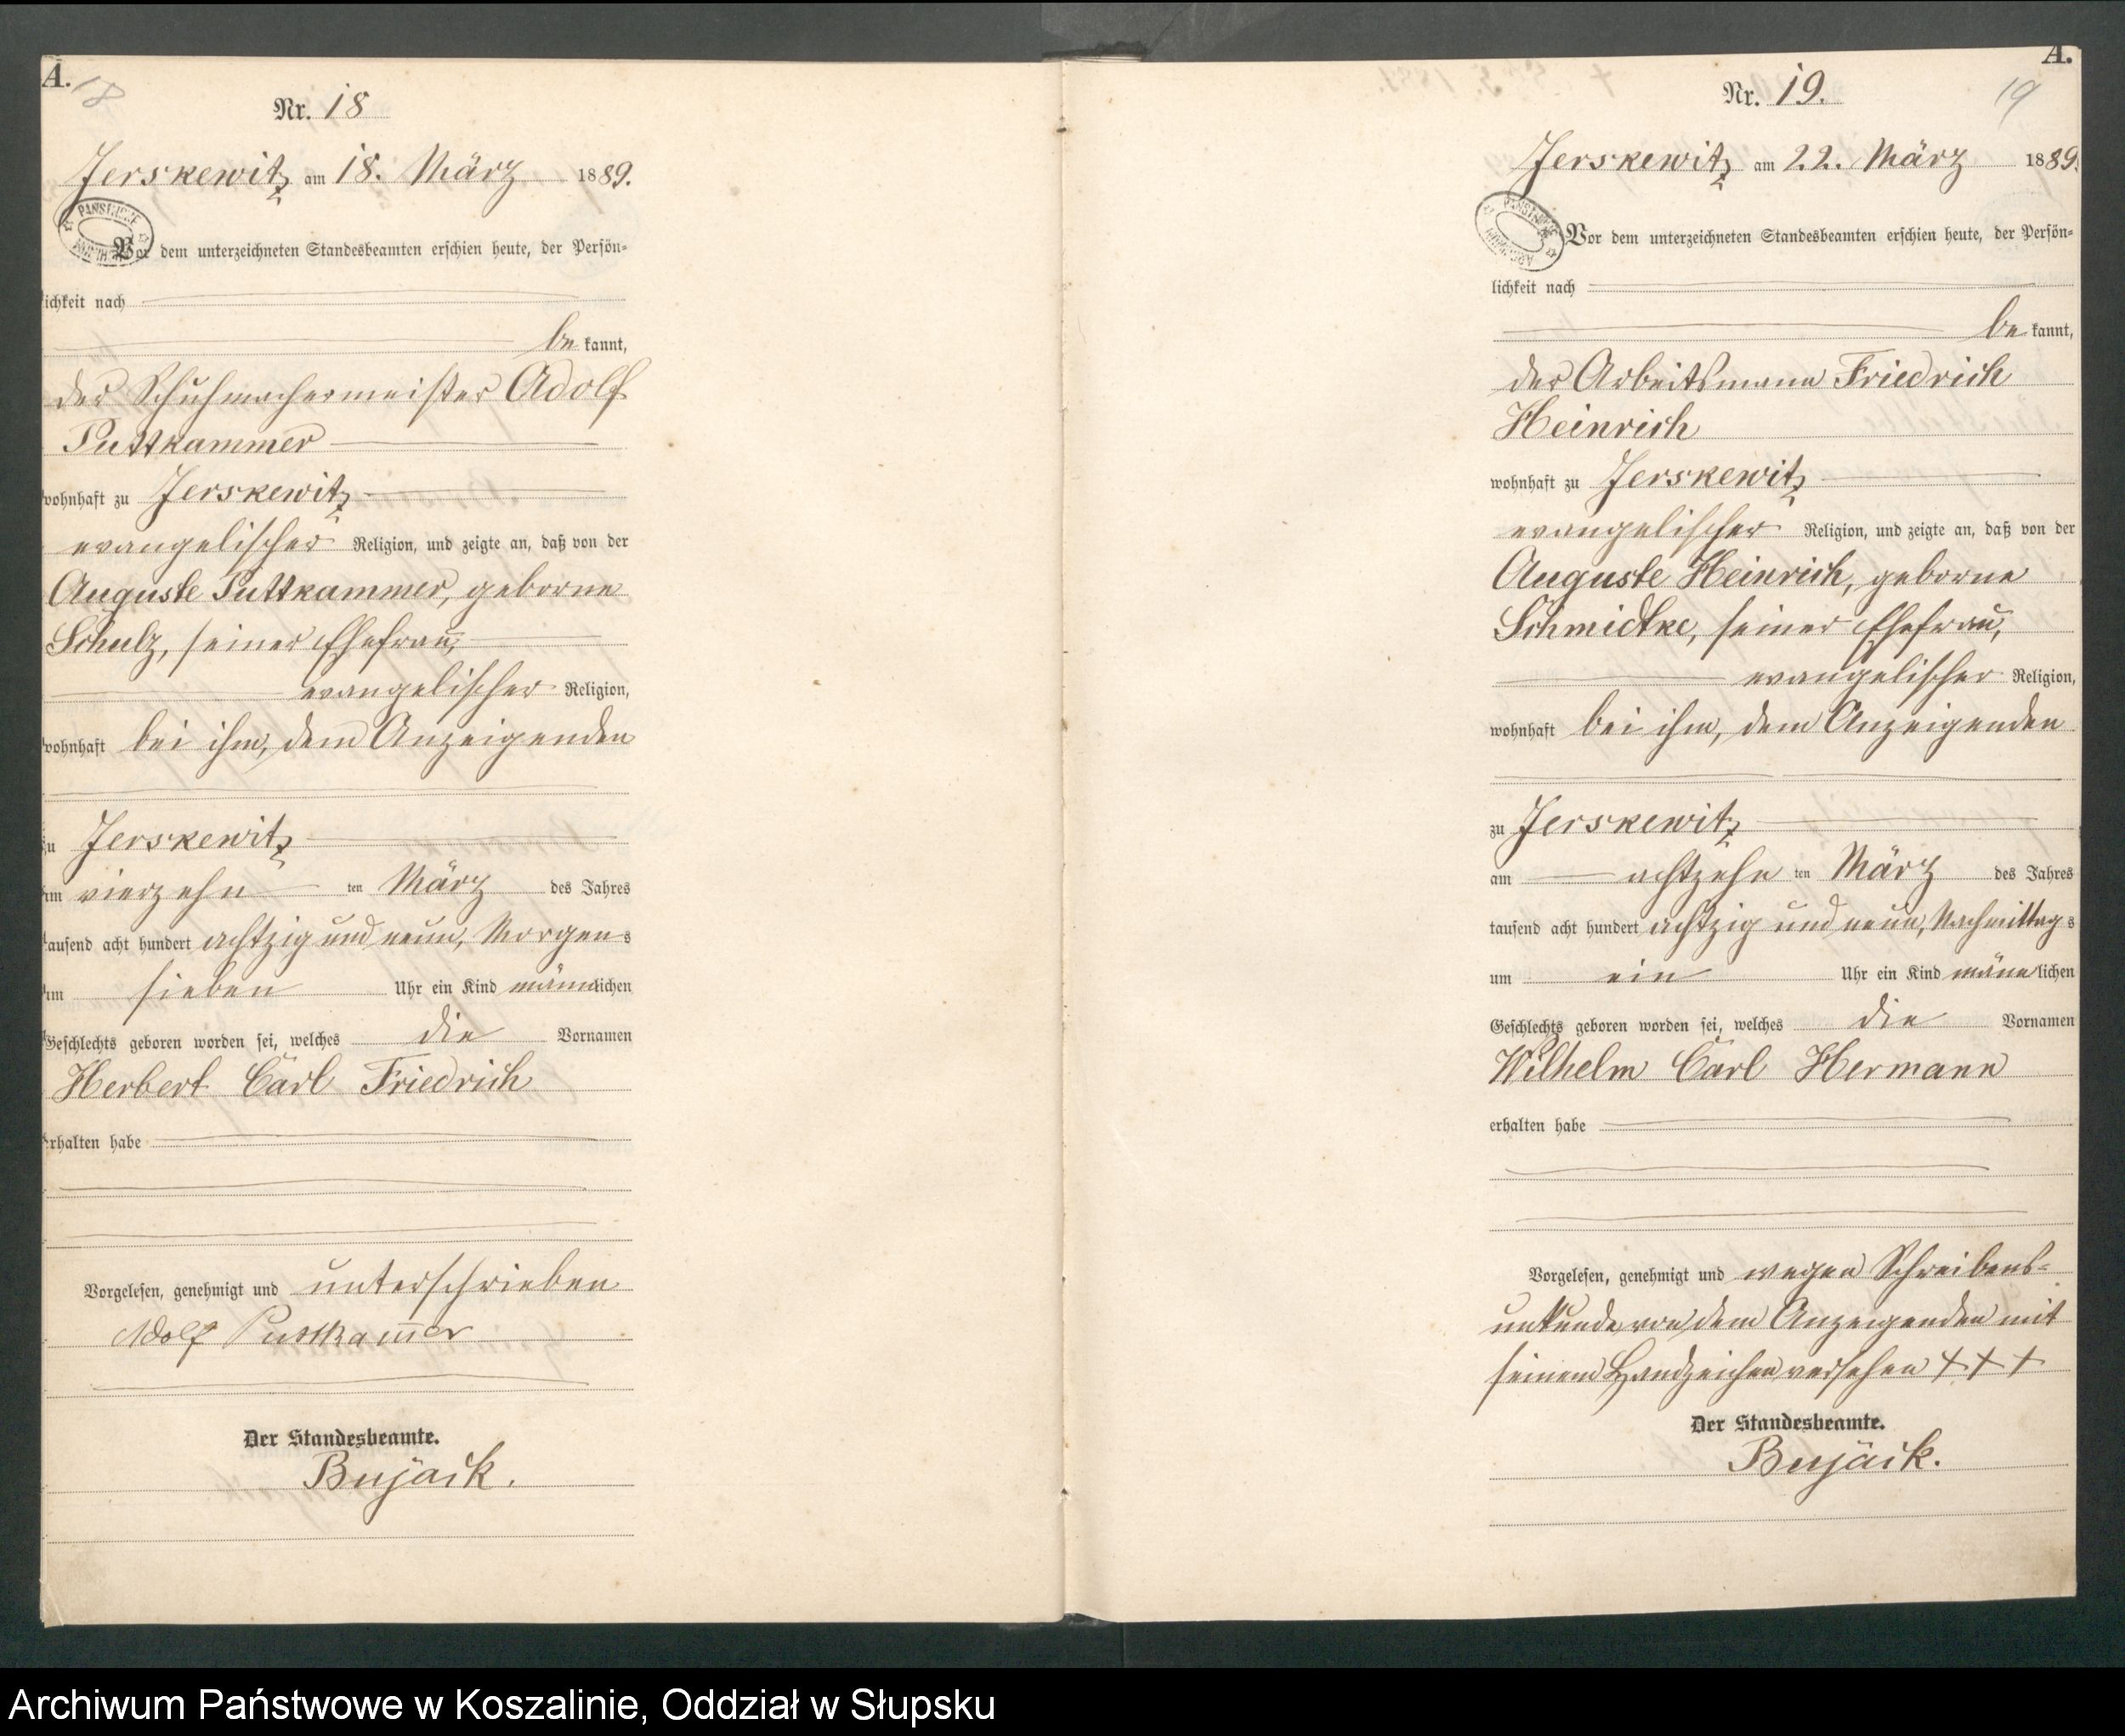 A.
18
Nr. 18
Jerskewitz am 18. März 1889.
Vor dem unterzeichneten Standesbeamten erschien heute, der Persön=
lichkeit nach
be kannt,
der Schuhmachermeister Adolf
Puttkammer
wohnhaft zu Jerskewitz
evangelischer Religion, und zeigte an, daß von der
Auguste Puttkammer, geborne
Schulz, seiner Ehefrau,
evangelischer Religion,
wohnhaft bei ihm, dem Anzeigenden
zu Jerskewitz
am vierzehn ten März des Jahres
tausend acht hundert achtzig und neun, Morgens
um sieben Uhr ein Kind männlichen
Geschlechts geboren worden sei, welches die Vornamen
Herbert Carl Friedrich
erhalten habe
Vorgelesen, genehmigt und unterschrieben
Adolf Puttkammer
Der Standesbeamte.
Bujack.
A.
19
Nr. 19.
Jerskewitz am 22. März 1889.
Vor dem unterzeichneten Standesbeamten erschien heute, der Persön=
lichkeit nach
be kannt,
der Arbeitsmann Friedrich
Heinrich
wohnhaft zu Jerskewitz
evangelischer Religion, und zeigte an, daß von der
Auguste Heinrich, geborne
Schmidtke, seiner Ehefrau,
evangelischer Religion,
wohnhaft bei ihm, dem Anzeigenden
zu Jerskewitz
am achtzehn ten März des Jahres
tausend acht hundert achtzig und neun, Nachmittags
um ein Uhr ein Kind männlichen
Geschlechts geboren worden sei, welches die Vornamen
Wilhelm Carl Hermann
erhalten habe
Vorgelesen, genehmigt und wegen Schreibens=
unkunde von dem Anzeigenden mit
seinem Handzeichen versehen +++
Der Standesbeamte.
Bujack.
Archiwum Państwowe w Koszalinie, Oddział w Słupsku